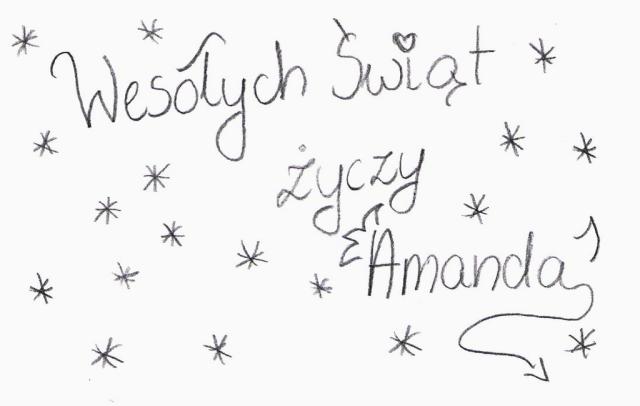 Wesołych Świąt
życzy
Amanda